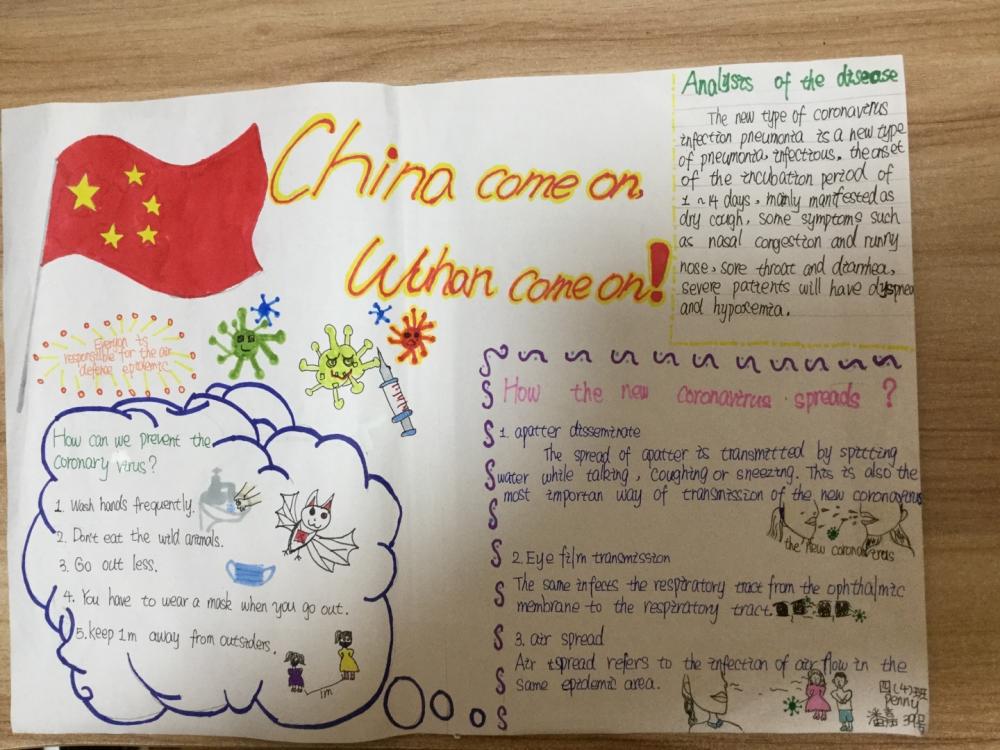 China come on,
Wuhan come on!
Analysis of the disease
The new type of coronavirus
infection pneumonia is a new type
of pneumonia, infectious, the onset
of the incubation period of
1~14 days, mainly manifested as
dry cough, some symptoms such
as nasal congestion and runny
nose, sore throat and diarrhea,
severe patients will have dyspnea
and hypoxemia.
is
responsible for the air
defense epidemic
How can we prevent the
coronary virus?
1. Wash hands frequently.
2. Don't eat the wild animals.
3. Go out less.
4. You have to wear a mask when you go out.
5. keep 1m away from outsiders.
1m
How the new coronavirus spreads ?
1. apatter disseminate
The spread of apatter is transmitted by spitting
water while talking, coughing or sneezing. This is also the
most importan way of transmission of the new coronavirus
the new coronavirus
2. Eye film transmission
The same infects the respiratory tract from the ophthalmic
membrane to the respiratory tract.
3. air spread
Air spread refers to the infection of air flow in the
same epidemic area.
四(4)班
Penny
潘嘉 39号